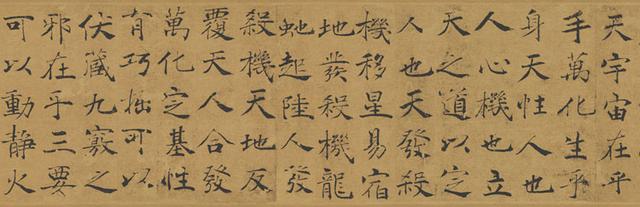 天宇宙在乎
手萬化生乎
身天性人也
人心機也立
天之道以定
人也天發殺
機移星易宿
地發殺機龍
虵起陸人發
殺機天地反
覆天人合發
萬化定基性
有巧拙可以
伏藏九竅之
邪在乎三要
可以動静火